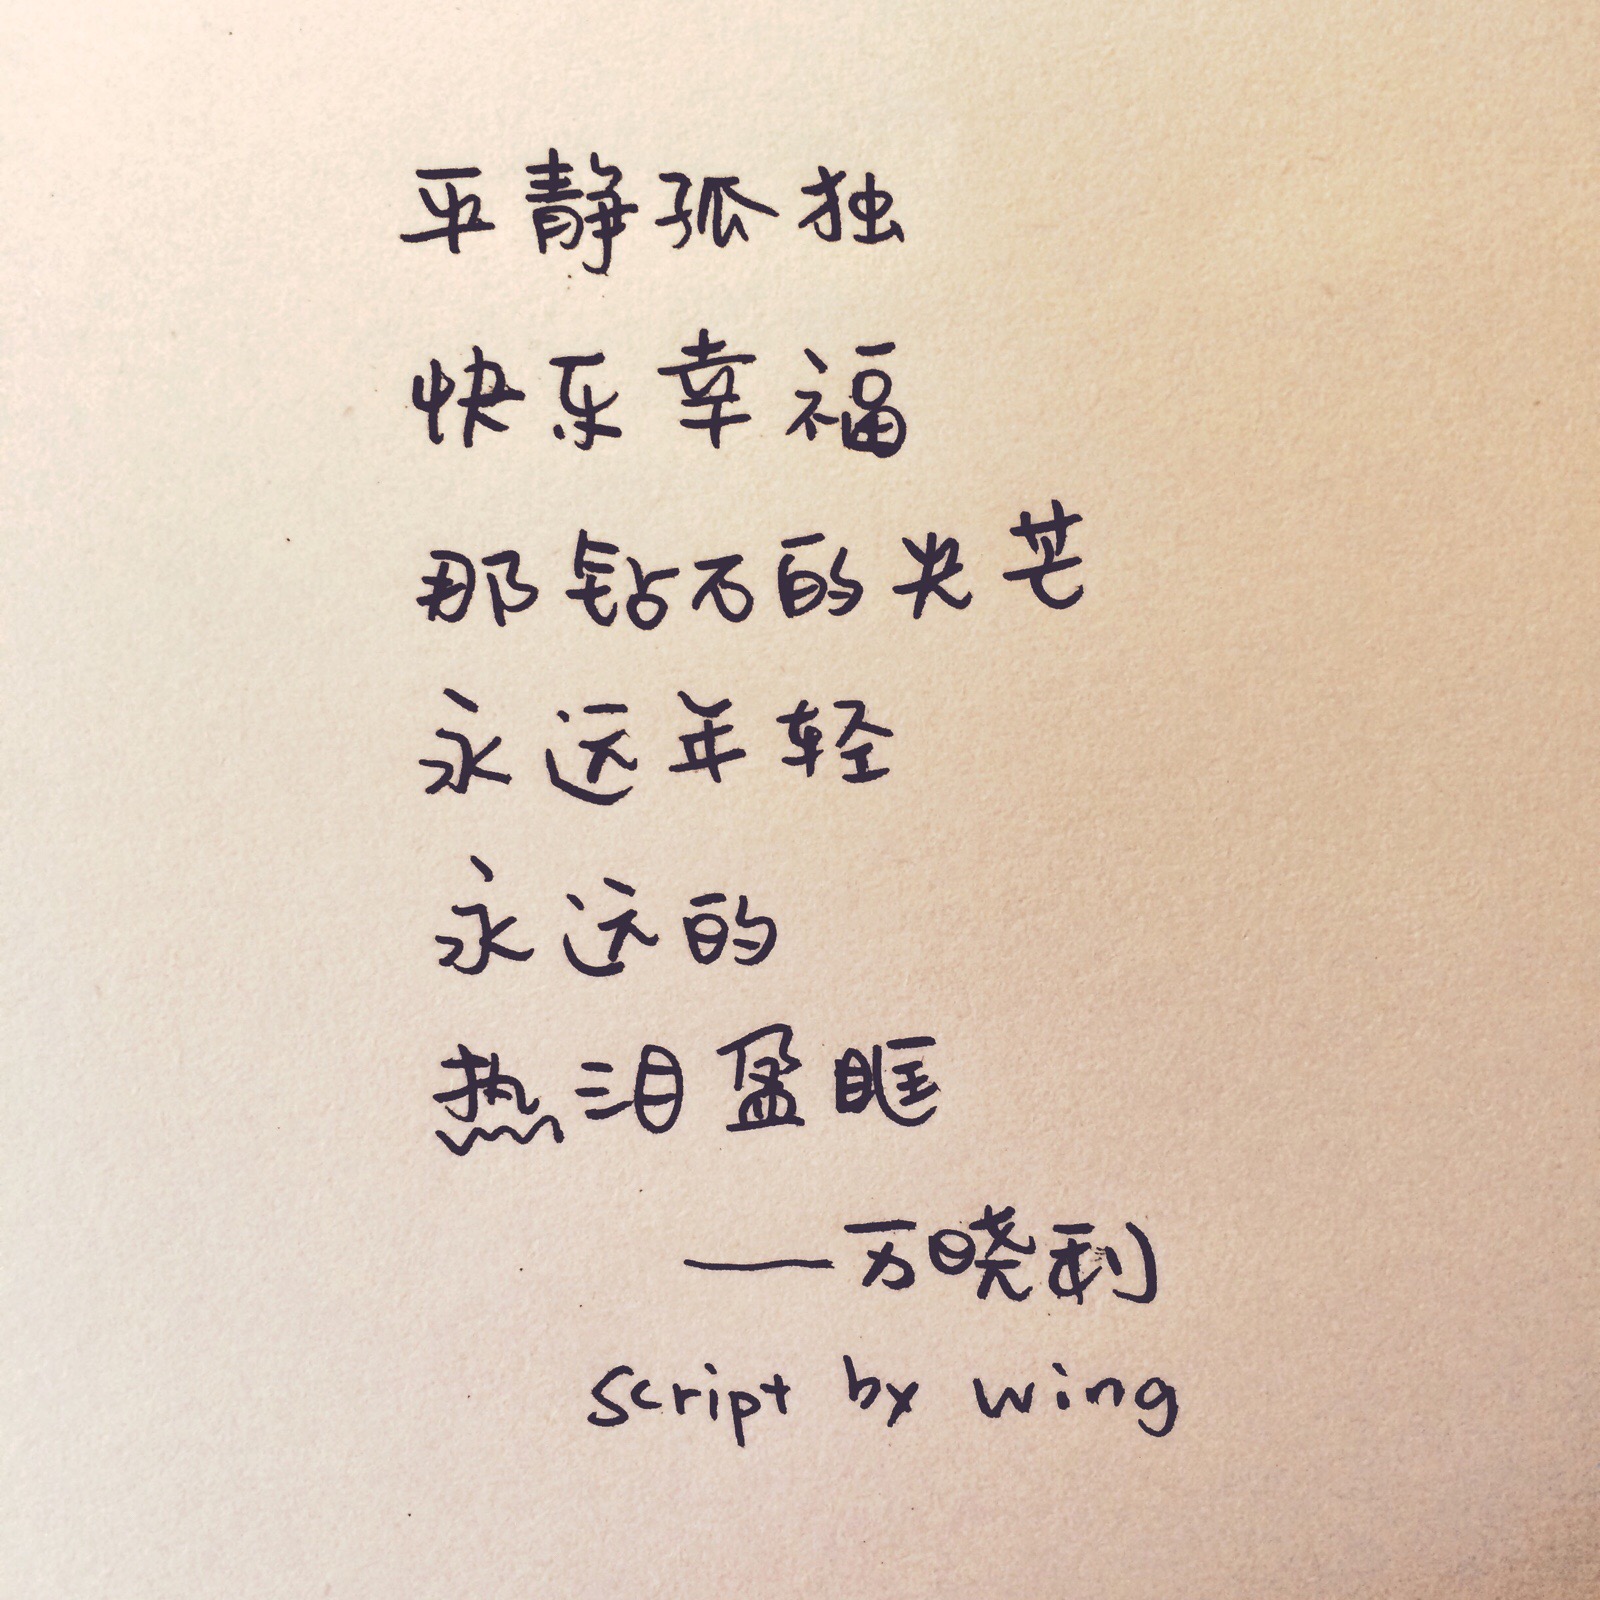 平静孤独
快乐幸福
那钻石的光芒
永远年轻
永远的
热泪盈眶
——万晓利
script by wing